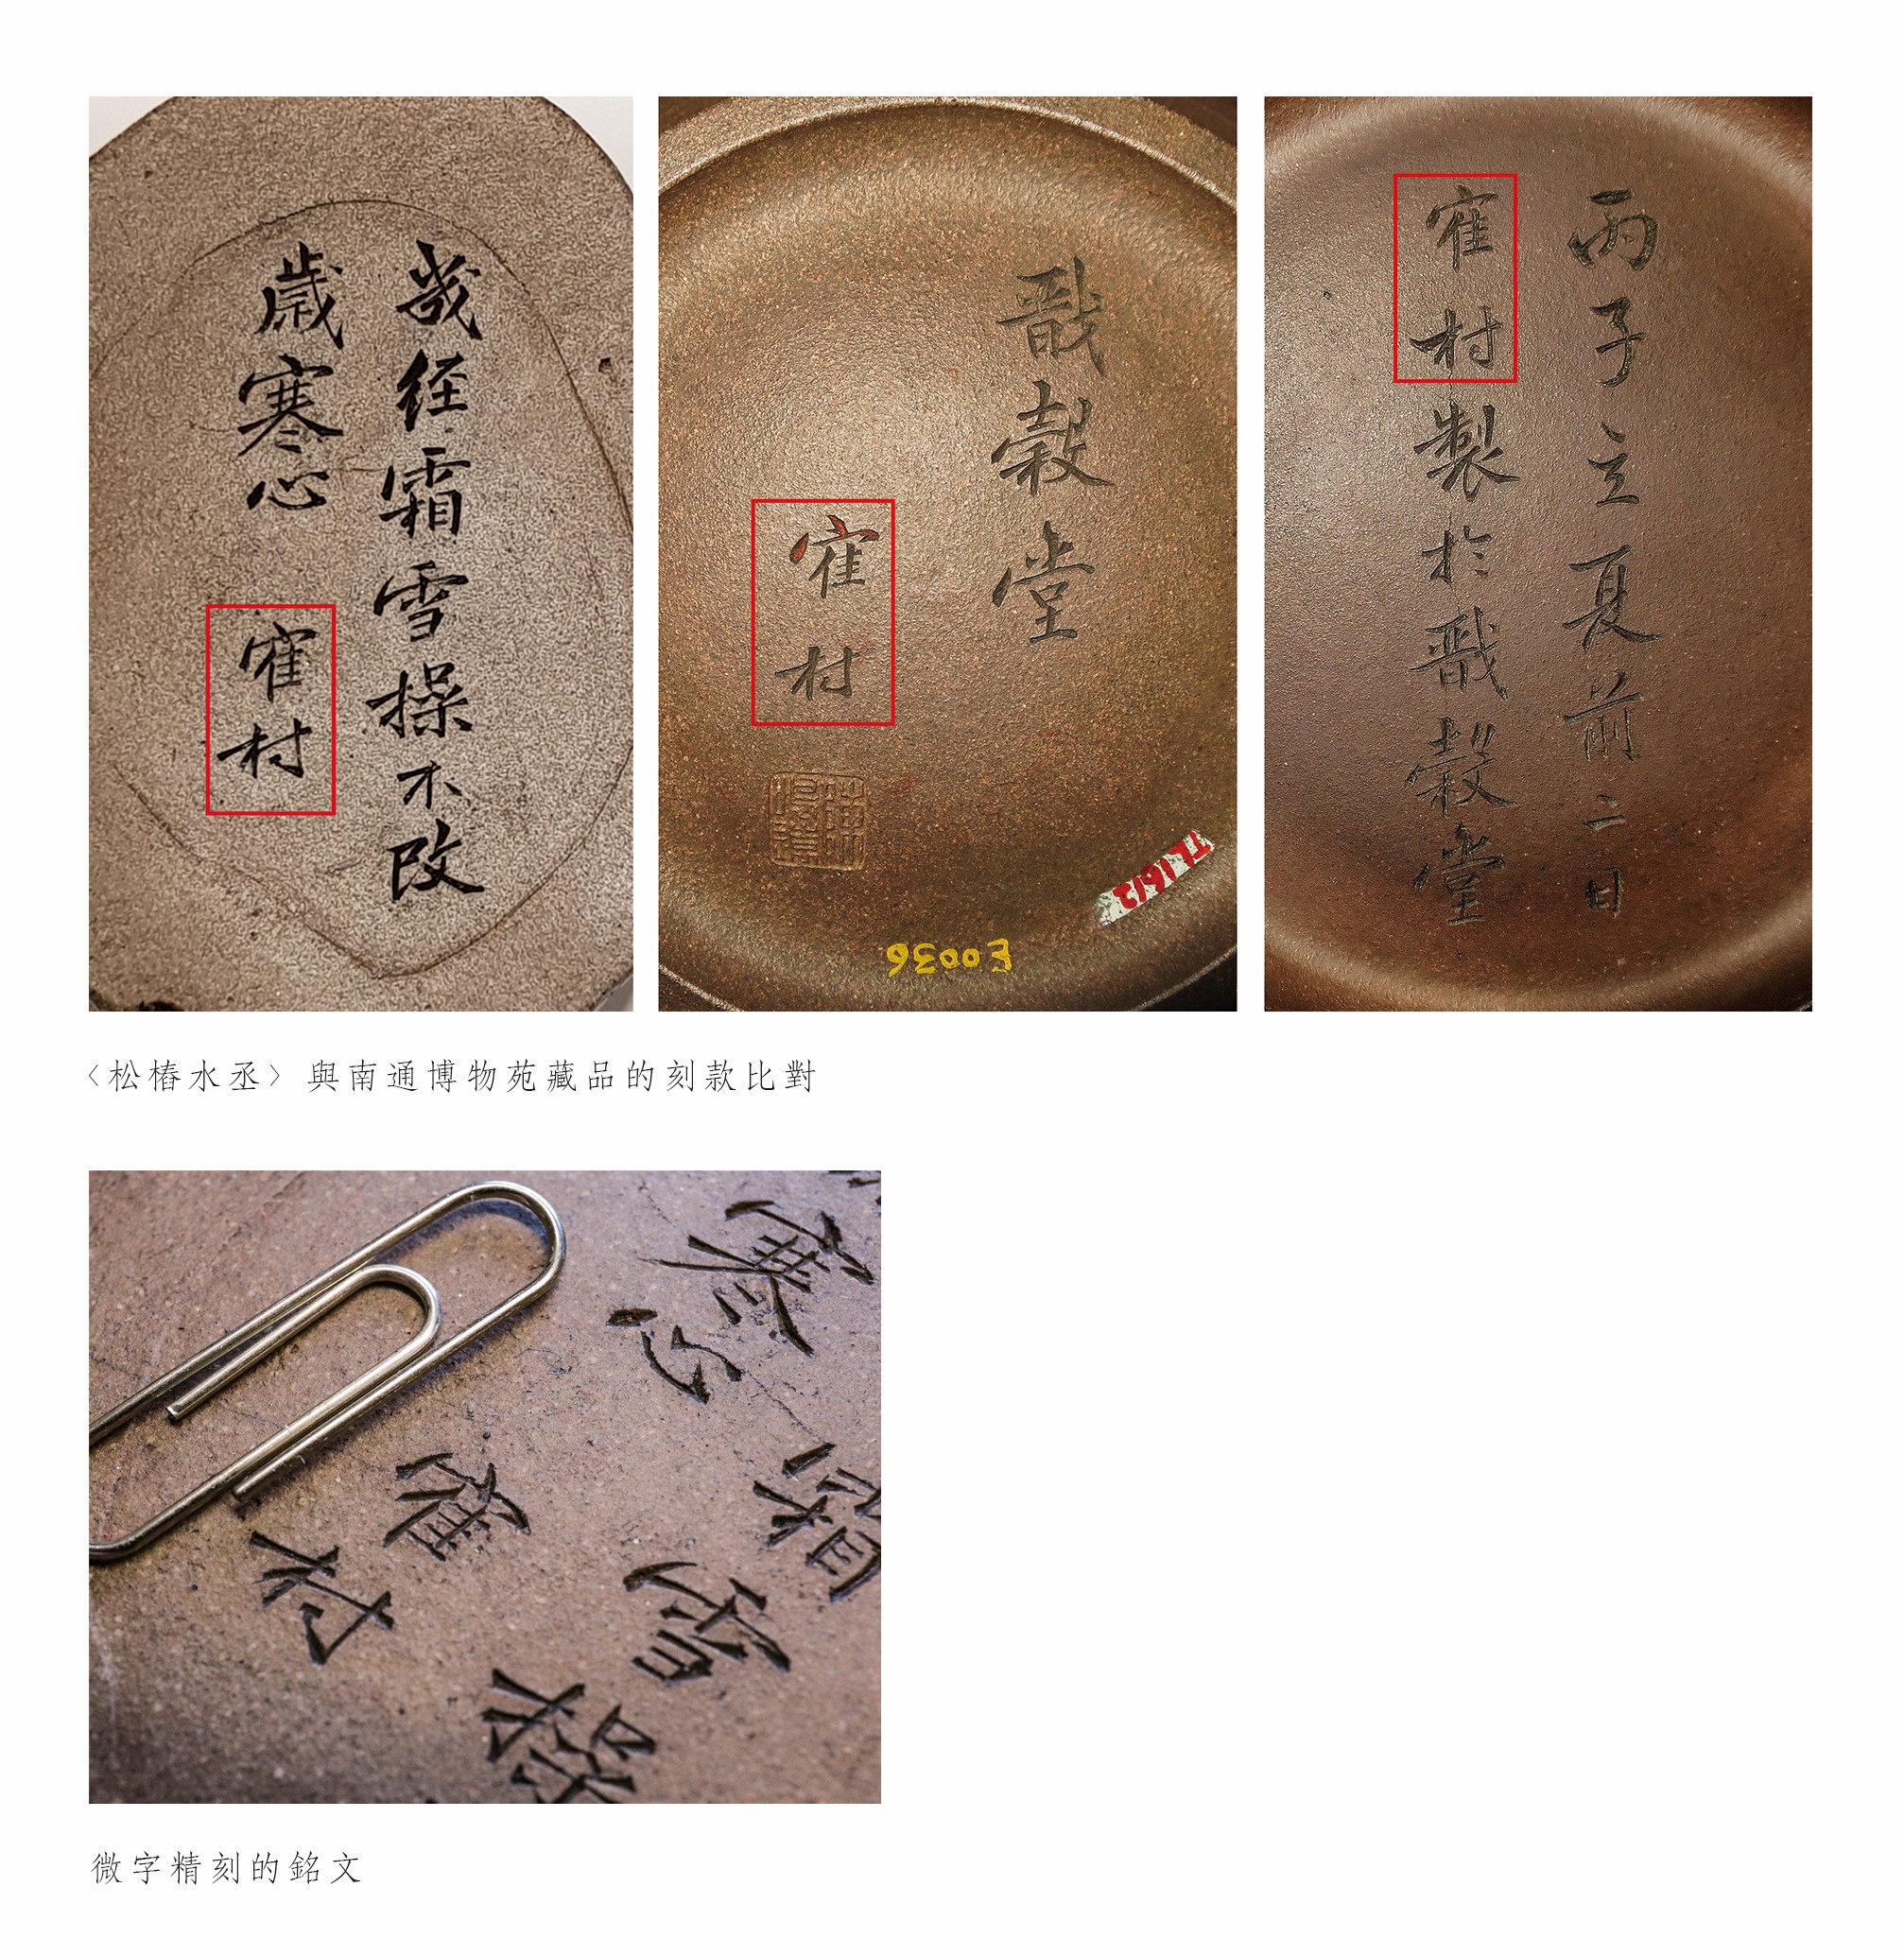 㡬経霜雪操不改
歳寒心
寉村
戩穀堂
寉村
E0036
丙子立夏前二日
寉村製於戩穀堂
〈松樁水丞〉與南通博物苑藏品的刻款比對
霜雪操
寒心
寉村
微字精刻的銘文